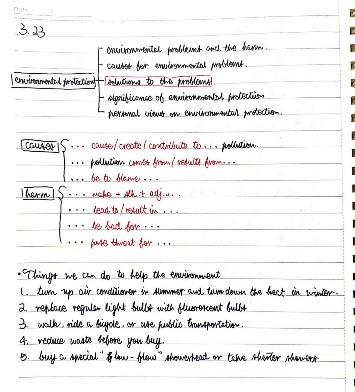 3.23
environmental problems and the harm.
causes for environmental problems.
environmental protection
solutions to the problems.
significance of environmental protection
personal views on environmental protection.
causes
... cause/create/contribute to... pollution.
... pollution comes from/results from...
... be to blame...
harm
... make + sth. + adj....
... lead to/result in ...
... be bad for ...
... pose threat for ...
• Things we can do to help the environment
1. turn up air conditioner in summer and turn down the heat in winter.
2. replace regular light bulbs with fluorescent bulbs
3. walk, ride a bicycle, or use public transportation.
4. reduce waste before you buy.
5. buy a special "flow-flow" showerhead or take shorter showers